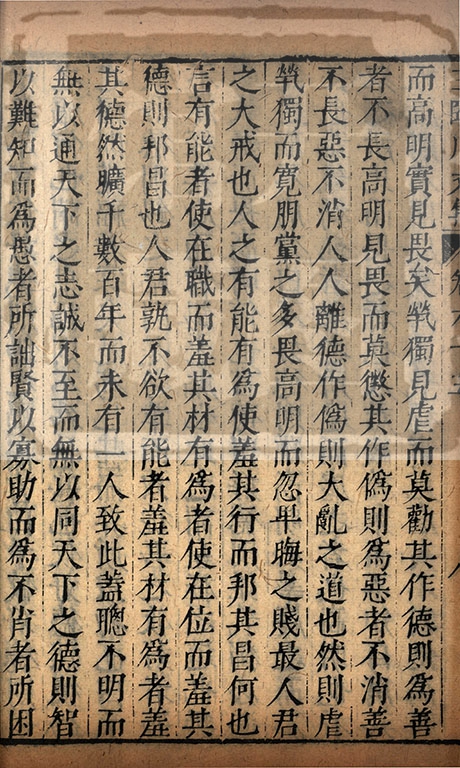 而高明實見畏矣煢獨見虐而莫勸其作德則爲善
者不長高明見畏而莫懲其作僞則爲惡者不消善
不長惡不消人人離德作僞則大亂之道也然則虐
煢獨而寬朋黨之多畏高明而忽卑晦之賤最人君
之大戒也人之有能有爲使羞其行而邦其昌何也
言有能者使在職而羞其材有爲者使在位而羞其
德則邦昌也人君孰不欲有能者羞其材有爲者羞
其德然曠千數百年而未有一人致此蓋聰不明而
無以通天下之志誠不至而無以同天下之德則智
以難知而爲愚者所詘賢以寡助而爲不肖者所困